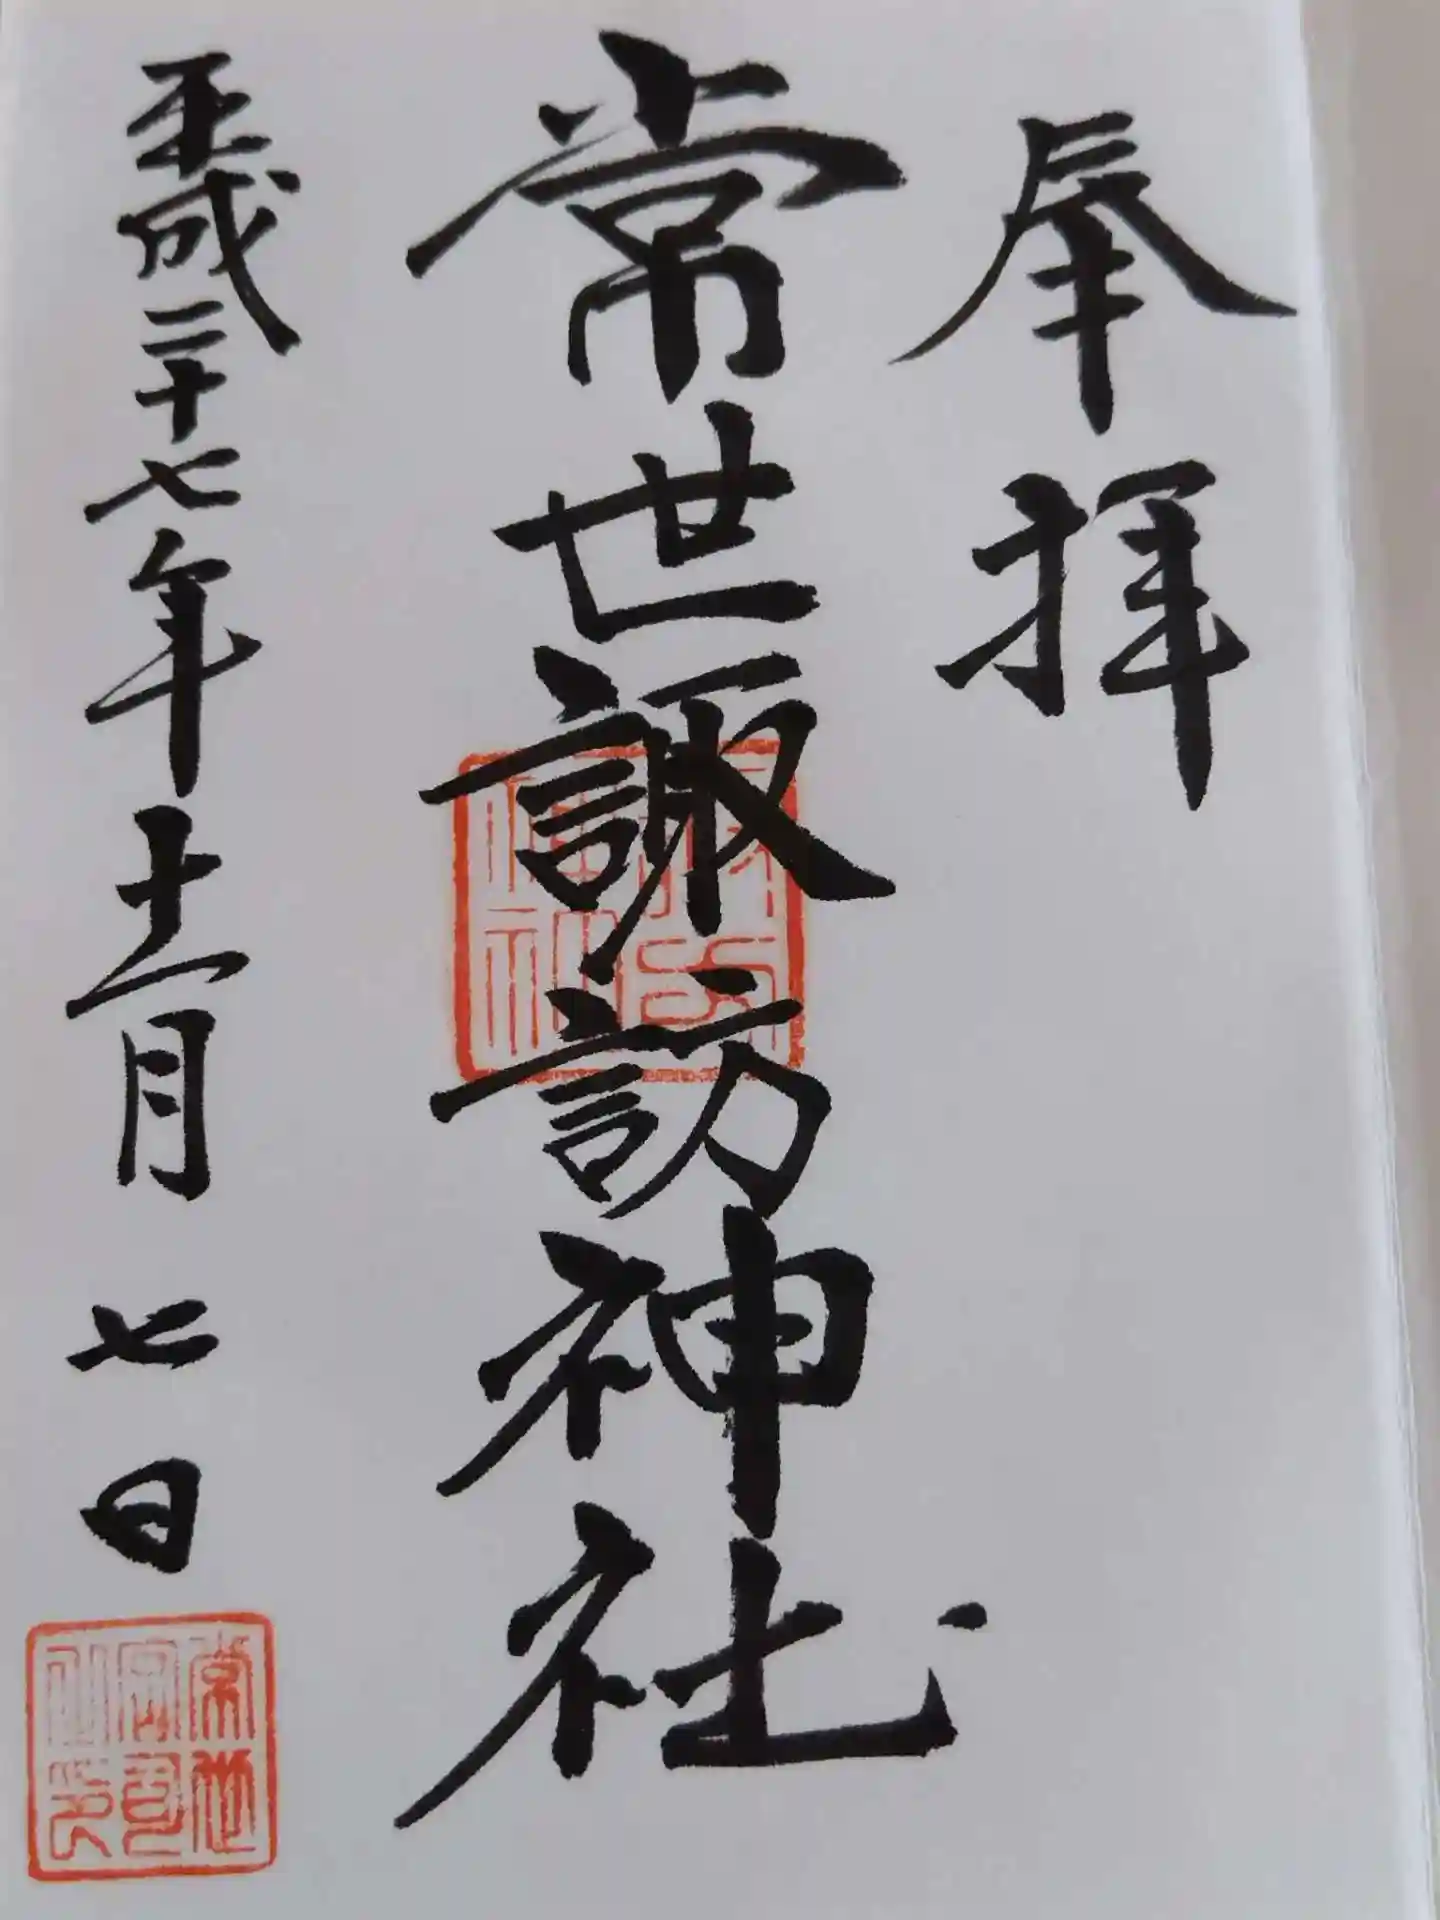 奉拝
常世諏訪神社
平成二十七年十一月七日